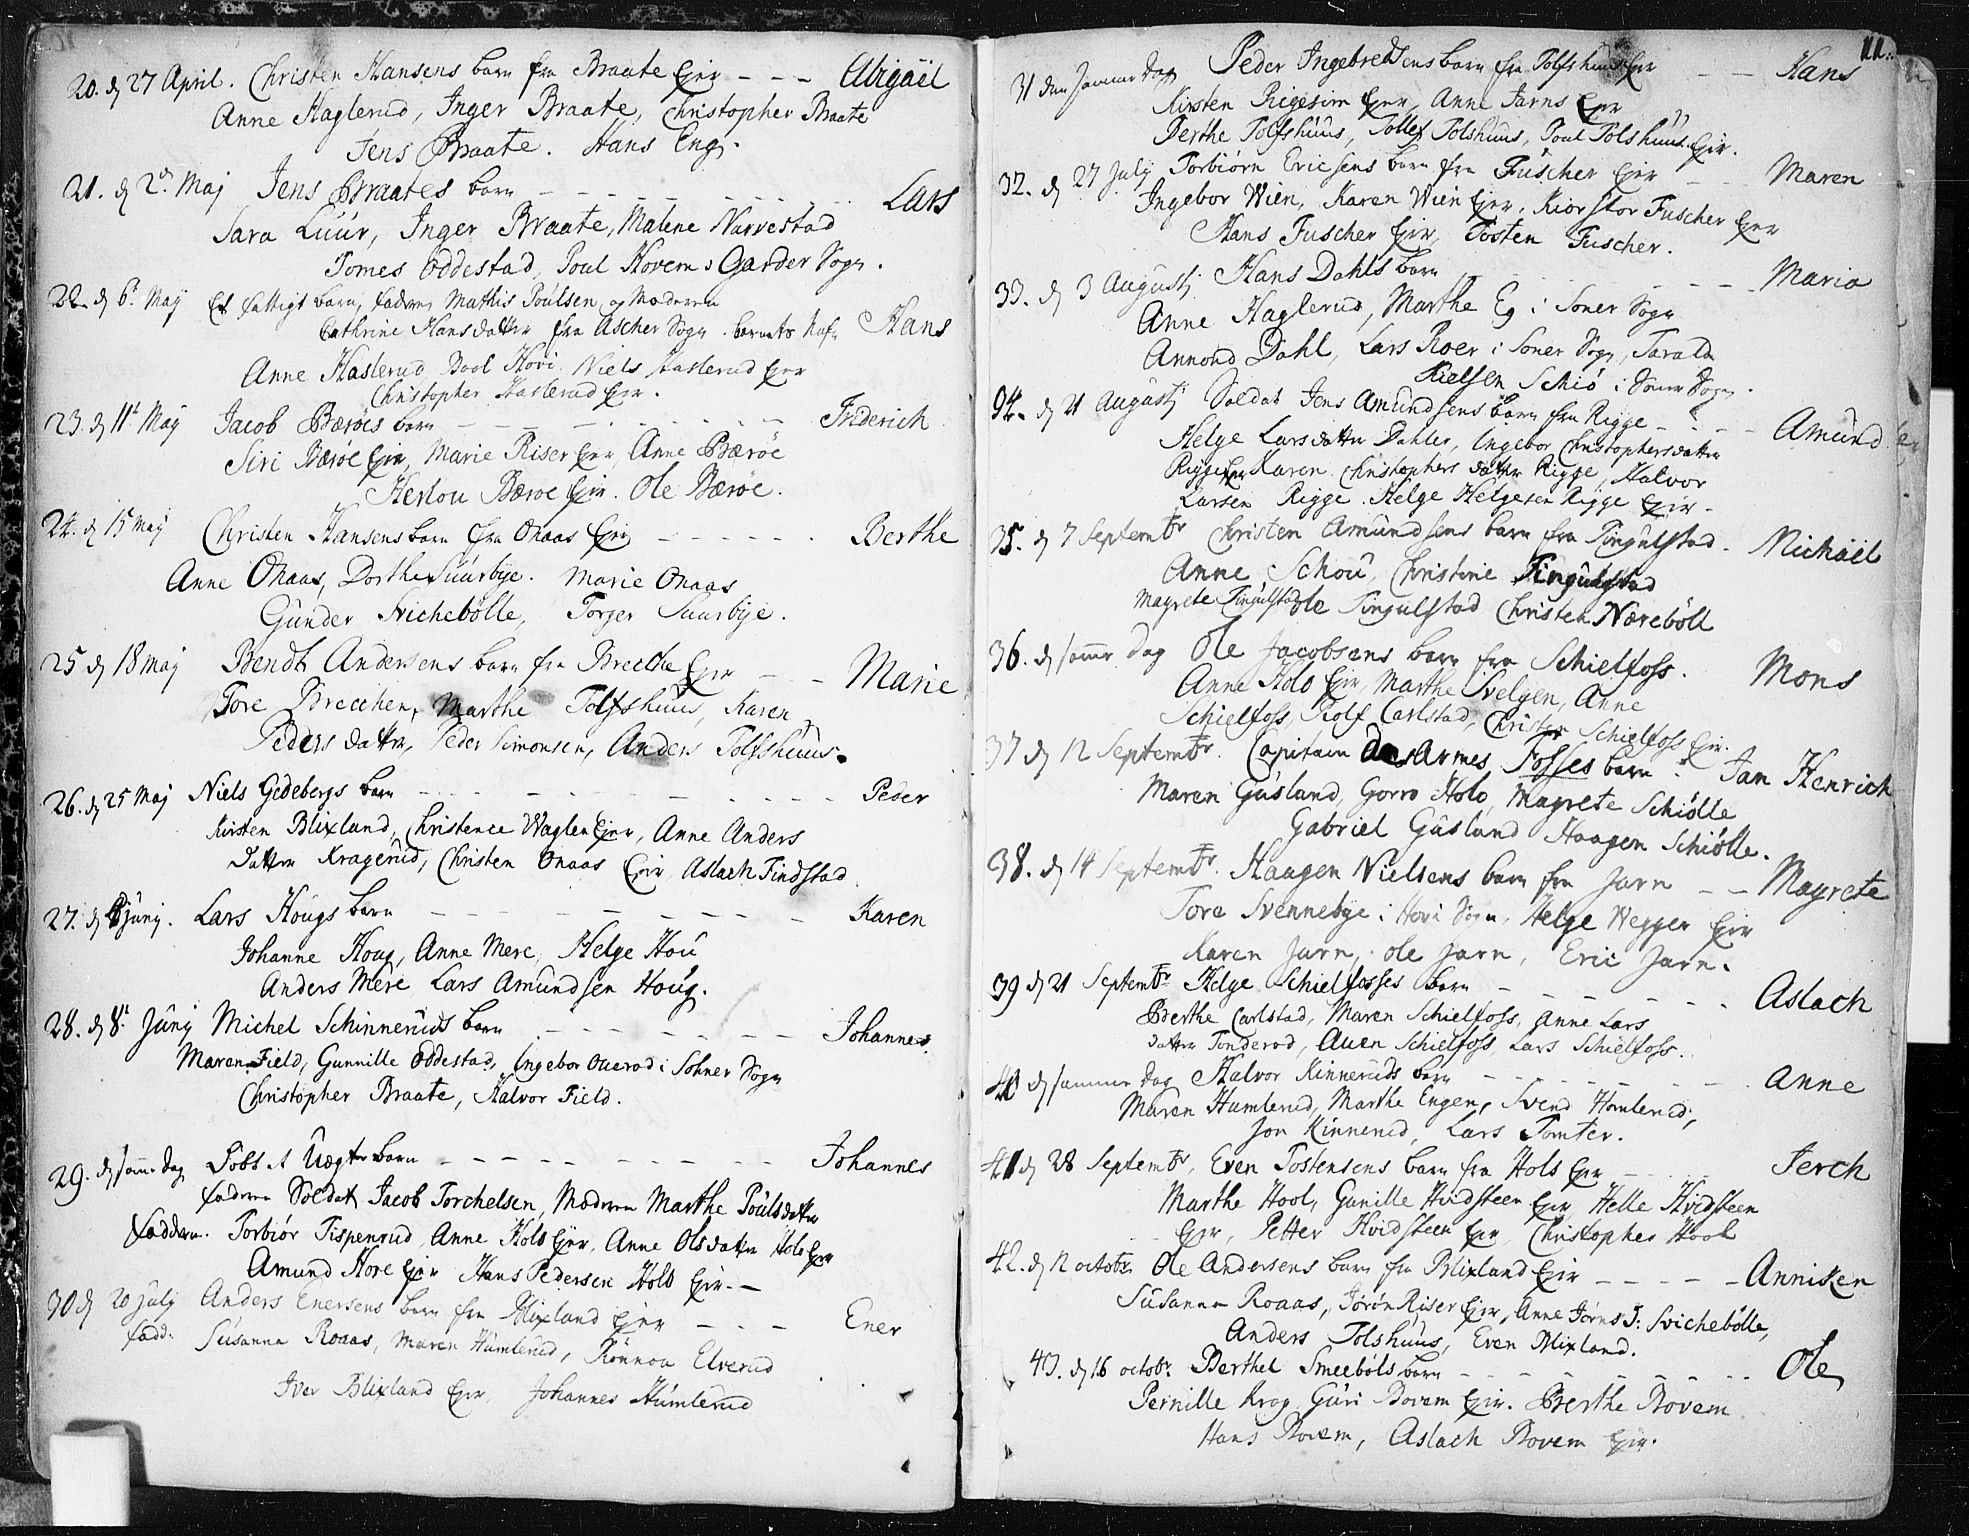 20. d 27 April. Christen Hansens barn fra Braate Ejer - - - Abigäel
Anne Haglerud, Inger Braate, Christopher Braate
Jens Braate. Hans Eng.
21. d 2d. Maj Jens Braates barn - - - Lars
Sara Luur, Inger Braate, Malene Narvestad
Tomes Oddestad, Poul Hovem i Garder Sogn.
22. d 6t. Maij Et fattigt barn, faderen Mathis Poulsen, og Moderen
Cathrine Hansdatter fra Ascher Sogn. barnets Nafn Hans
Anne Haslerud Bool Hovi. Niels Haslerud Ejer
Christopher Haslerud Ejer.
23. d 11t Maij Jacob Bæröes barn - - - Friderich
Siri Bæroe Ejer, Marie Riser Ejer, Anne Bæröe
Herlou Bæroe Ejer. Ole Bæröe.
24. d 15 Maij Christen Hansens barn fra Onaas Ejer - - - Berthe
Anne Onaas, Dorthe Suurbye. Marie Onaas
Gunder Svichebölle, Torger Suurbye.
25 d 18 Maij Bendt Andersens barn fra Breche Ejer - - - Marie
Tore Brechen, Marthe Tolfshuus, Karen
Peders datter, Peder Simonsen, Anders Tolfshuus.
26. d 25 Maj Niels Gedebergs barn - - - Peder
Kirsten Blixland, Christence Waglen Ejer, Anne Anders
datter Kragerud, Christen Onaas Ejer Aslach Findstad
27. d Junij. Lars Hougs barn - - - Karen
Johanne Houg, Anne Mere, Helge Hou
Anders Mere Lars Amundsen Houg.
28. d 8t. Junij Michel Schinneruds barn - - - Johannes.
Maren Field, Gunnille Oddestad, Ingebor Ouerod i Sohner Sogn
Christopher Braate, Halvor Field.
29. d samme dag Döbt et Uægte barn - - - Johannes
faderen Soldat Jacob Torchelsen, Moderen Marthe Pouls datter
Faddere. Torbiör Tispenrud, Anne Holo Ejer, Anne Ols datter Holo Ejer
Amund Hore Ejer Hans Pedersen Holo Ejer. -
30 d 20 Julij Anders Enersens barn fra Blixland Ejer - - - Ener
fadd. Susanna Roaas, Maren Humlerud, Rönnou Elverud
Iver Blixland Ejer, Johannes Humlerud
11.
31 den samme dag Peder Ingebredsens barn fra Tolfshuus Ejer - - Hans
Kirsten Rigesim Ejer, Anne Jarns Ejer
Berthe Tolfshuus, Tollef Tolshuus, Poul Tolshuus Ejer.
32. d 27 Julij Torbiörn Ericsens barn fra Fuscher Ejer - - Maren
Ingebor Wien, Karen Wien Ejer, Kiorstor Fuscher Ejer
Hans Fuscher Ejer, Tosten Fuscher.
33. d 3 Augustj Hans Dahls barn - - - Maria
Anne Haglerud, Marthe Eg i Soner Sogn
Annond Dahl, Lars Roer i Soner Sogn, Tarald
Kielsen Schiö i Soner Sogn.
34. d 21 Augustj Soldat Jens Amundsens barn fra Rigge - - - Amund
Helge Lars datter Dahler, Ingebor Christophersdatter
Rigge Ejer Karen Christophers datter Rigge, Halvor
Larsen Rigge. Helge Helgesen Rigge Ejer.
35. d 7 Septembr Christen Amundsens barn fra Tingulstad. Michäel
Anne Schou, Christine Tingulstad
Magrete Tingulstad Ole Tingulstad Christen Næreböll
36. d samme Dag Ole Jacobsens barn fra Schielfoss. Mons
Anne Holo Ejer, Marthe Svelgen, Anne
Schielfoss, Rolf Carlstad, Christen Schielfoss Ejer.
37 d 12 Septembr. Capitain de Armes Fosses barn - Jan Henrich
Maren Gusland, Gorro Holo, Magrete Schiölle
Gabriel Gusland Haagen Schiölle.
38. d 14 Septembr. Haagen Nielsens barn fra Jarn - - Magrete
Tore Svennebye i Hovi Sogn, Helge Wegger Ejer
Karen Jarn, Ole Jarn, Eric Jarn.
39 d 21 Septembr Helge Schielfosses barn - - - Aslach
Berthe Carlstad, Maren Schielfoss, Anne Lars
datter Tonderod, Auen Schielfoss, Lars Schielfoss.
40 d samme dag Halvor Kinneruds barn - - - Anne
Maren Humlerud, Marthe Engen, Svend Homlerud,
Jon Kinnerud, Lars Tomter.
41 d 28 Septembr, Even Tostensens barn fra Hols Ejer - Jerch
Marthe Hool, Gunille Hvidsteen Ejer Helle Hvidsteen
Ejer, Petter Hvidsteen Ejer Christopher Hool
42. d 12 octobr Ole Andersens barn fra Blixland Ejer - - - - Anniken
Susanna Roaas, Jörön Riser Ejer, Anne Jörns D: Svichebölle,
Anders Tolshuus, Even Blixland.
43. d 16 octobr. Berthel Smeebols barn - - - Ole
Pernille Krog Guri Bovem Ejer. Berthe Bovem
Hans Bovem, Aslach Bovem Ejer.